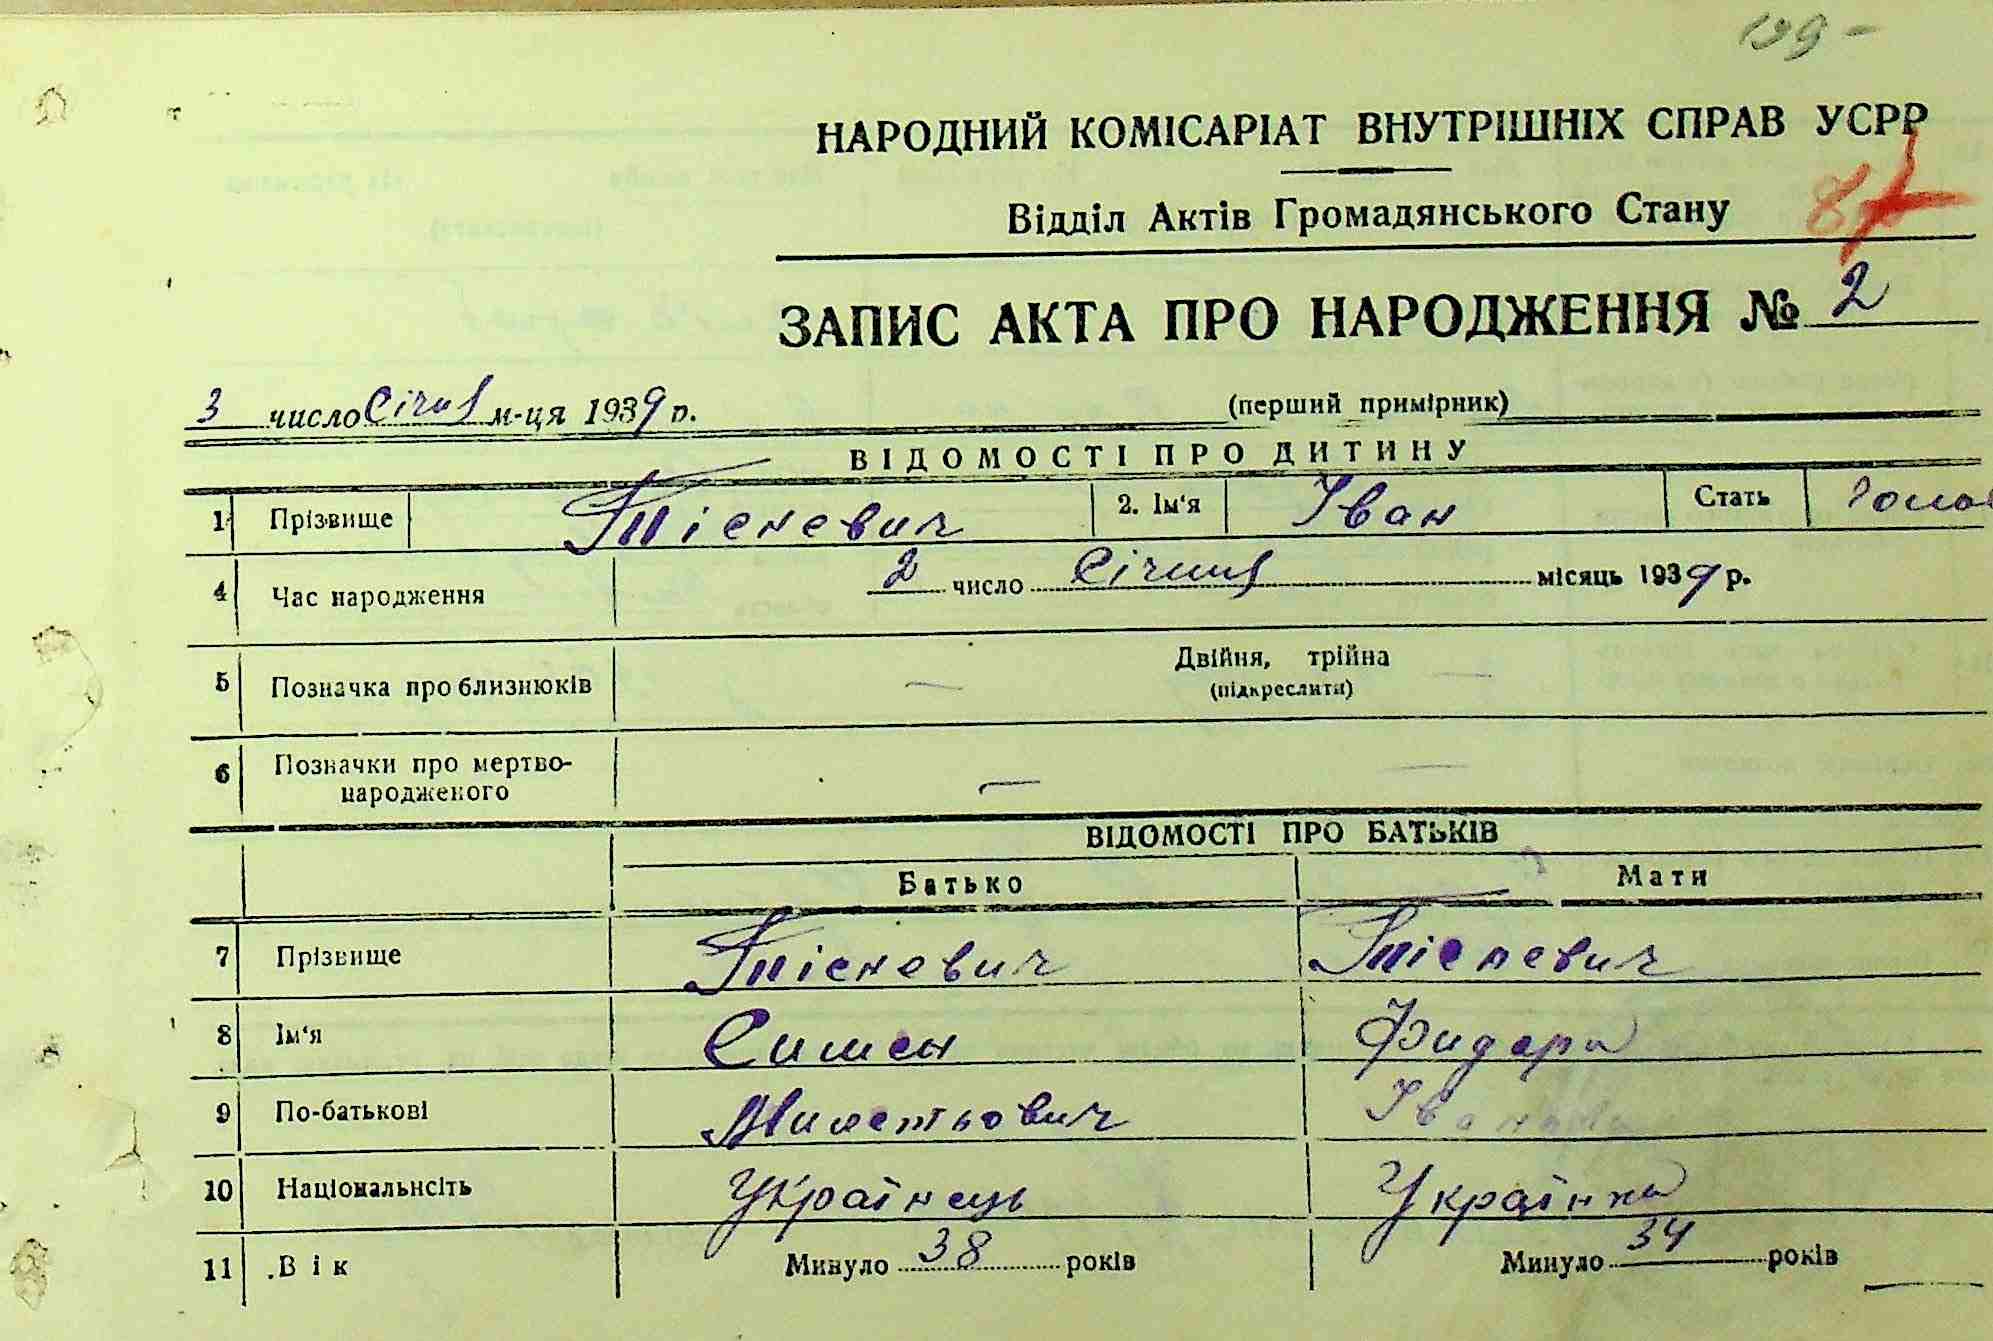 199-
НАРОДНИЙ КОМІСАРІАТ ВНУТРІШНІХ СПРАВ УСРР
Відділ Актів Громадянського Стану
87
ЗАПИС АКТА ПРО НАРОДЖЕННЯ № 2
3 число Січня м-ця 1939 р. (перший примірник)
ВІДОМОСТІ ПРО ДИТИНУ
1 Прізвище Тісневич 2. Ім'я Іван Стать
4 Час народження 2 число Січня місяць 1939 р.
5 Позначка про близнюків — Двійня, трійна —
(підкреслити)
6 Позначки про мертво-
народженого —
ВІДОМОСТІ ПРО БАТЬКІВ
Батько Мати
7 Прізвище Тісневич Тісневич
8 Ім'я Фидора
9 По-батькові Милетьович
10 Національнсіть Українець Українка
11 Вік Минуло 38 років Минуло 34 років